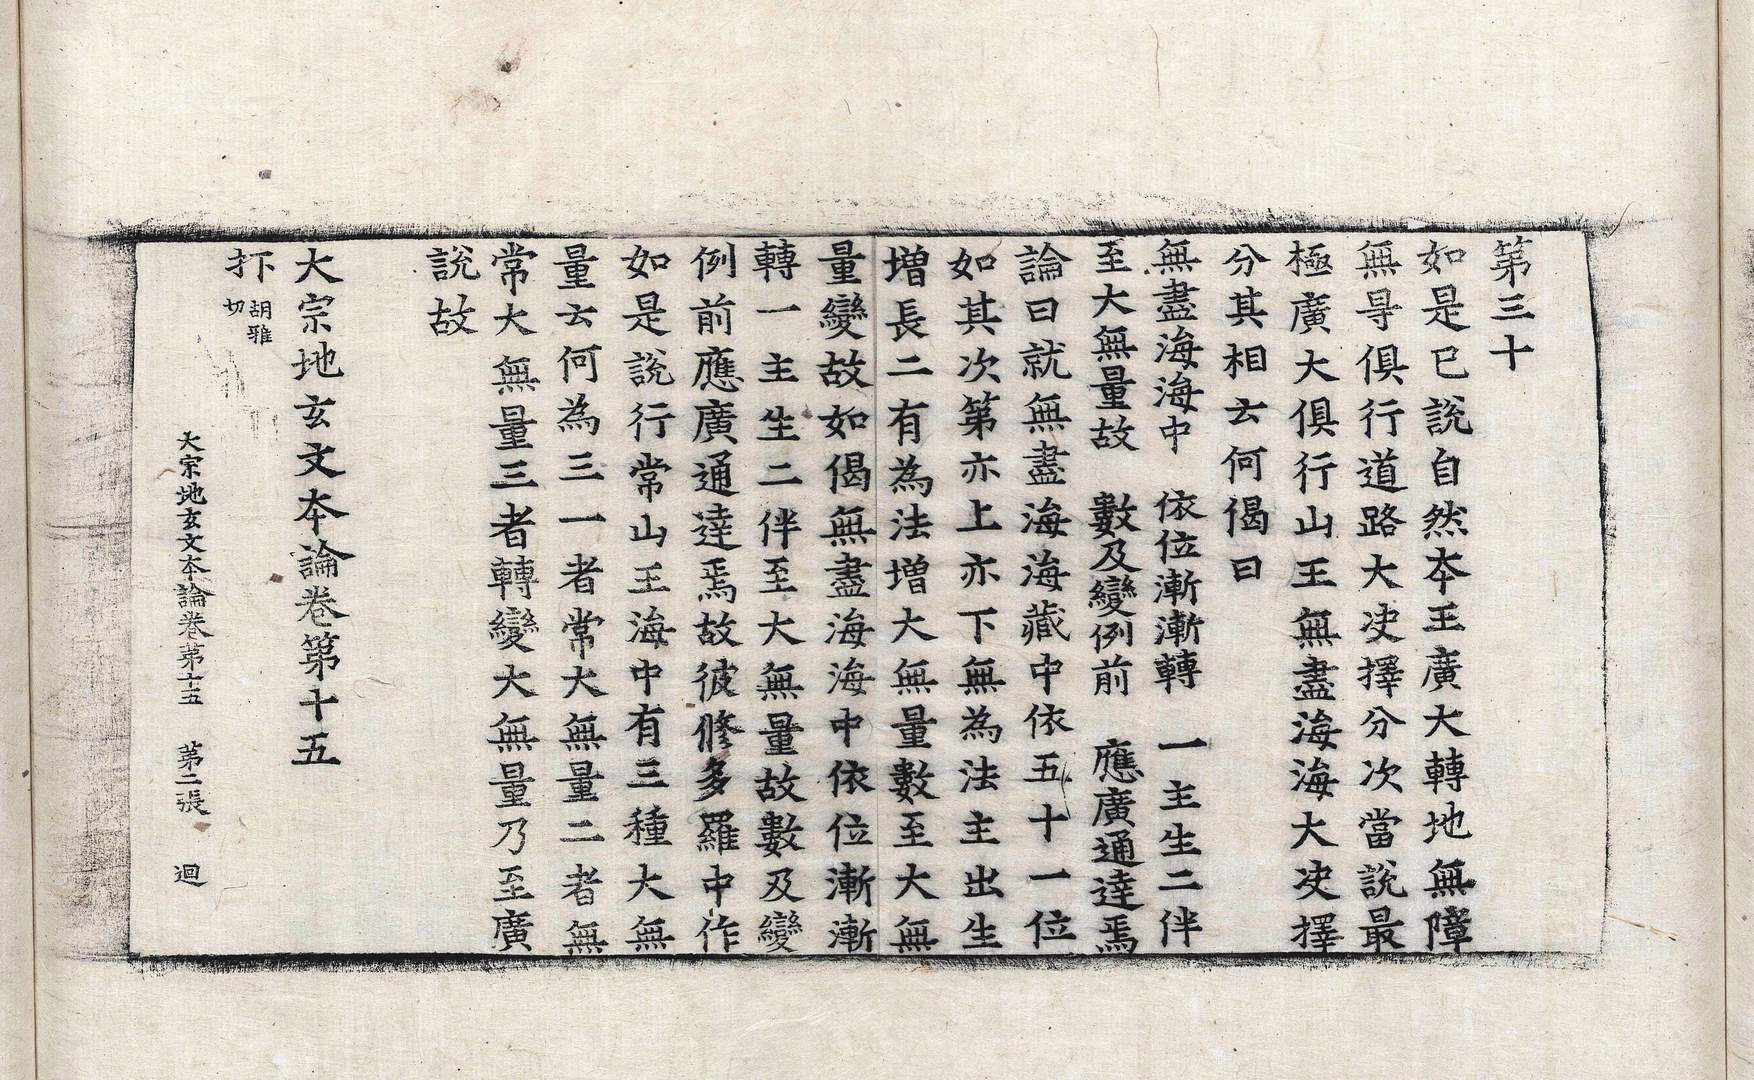 第三十
如是已說自然本王廣大轉地無障
無㝵俱行道路大决擇分次當說最
極廣大俱行山王無盡海海大决擇
分其相云何偈曰
無盡海海中　依位漸漸轉　一主生二伴
至大無量故　數及變例前　應廣通達焉
論曰就無盡海海藏中依五十一位
如其次第亦上亦下無為法主出生
增長二有為法增大無量數至大無
量變故如偈無盡海海中依位漸漸
轉一主生二伴至大無量故數及變
例前應廣通達焉故彼修多羅中作
如是說行常山王海中有三種大無
量云何為三一者常大無量二者無
常大無量三者轉變大無量乃至廣
說故
大宗地玄文本論卷第十五
㧎胡雅切
大宗地玄文本論卷第十五　第二張　迴